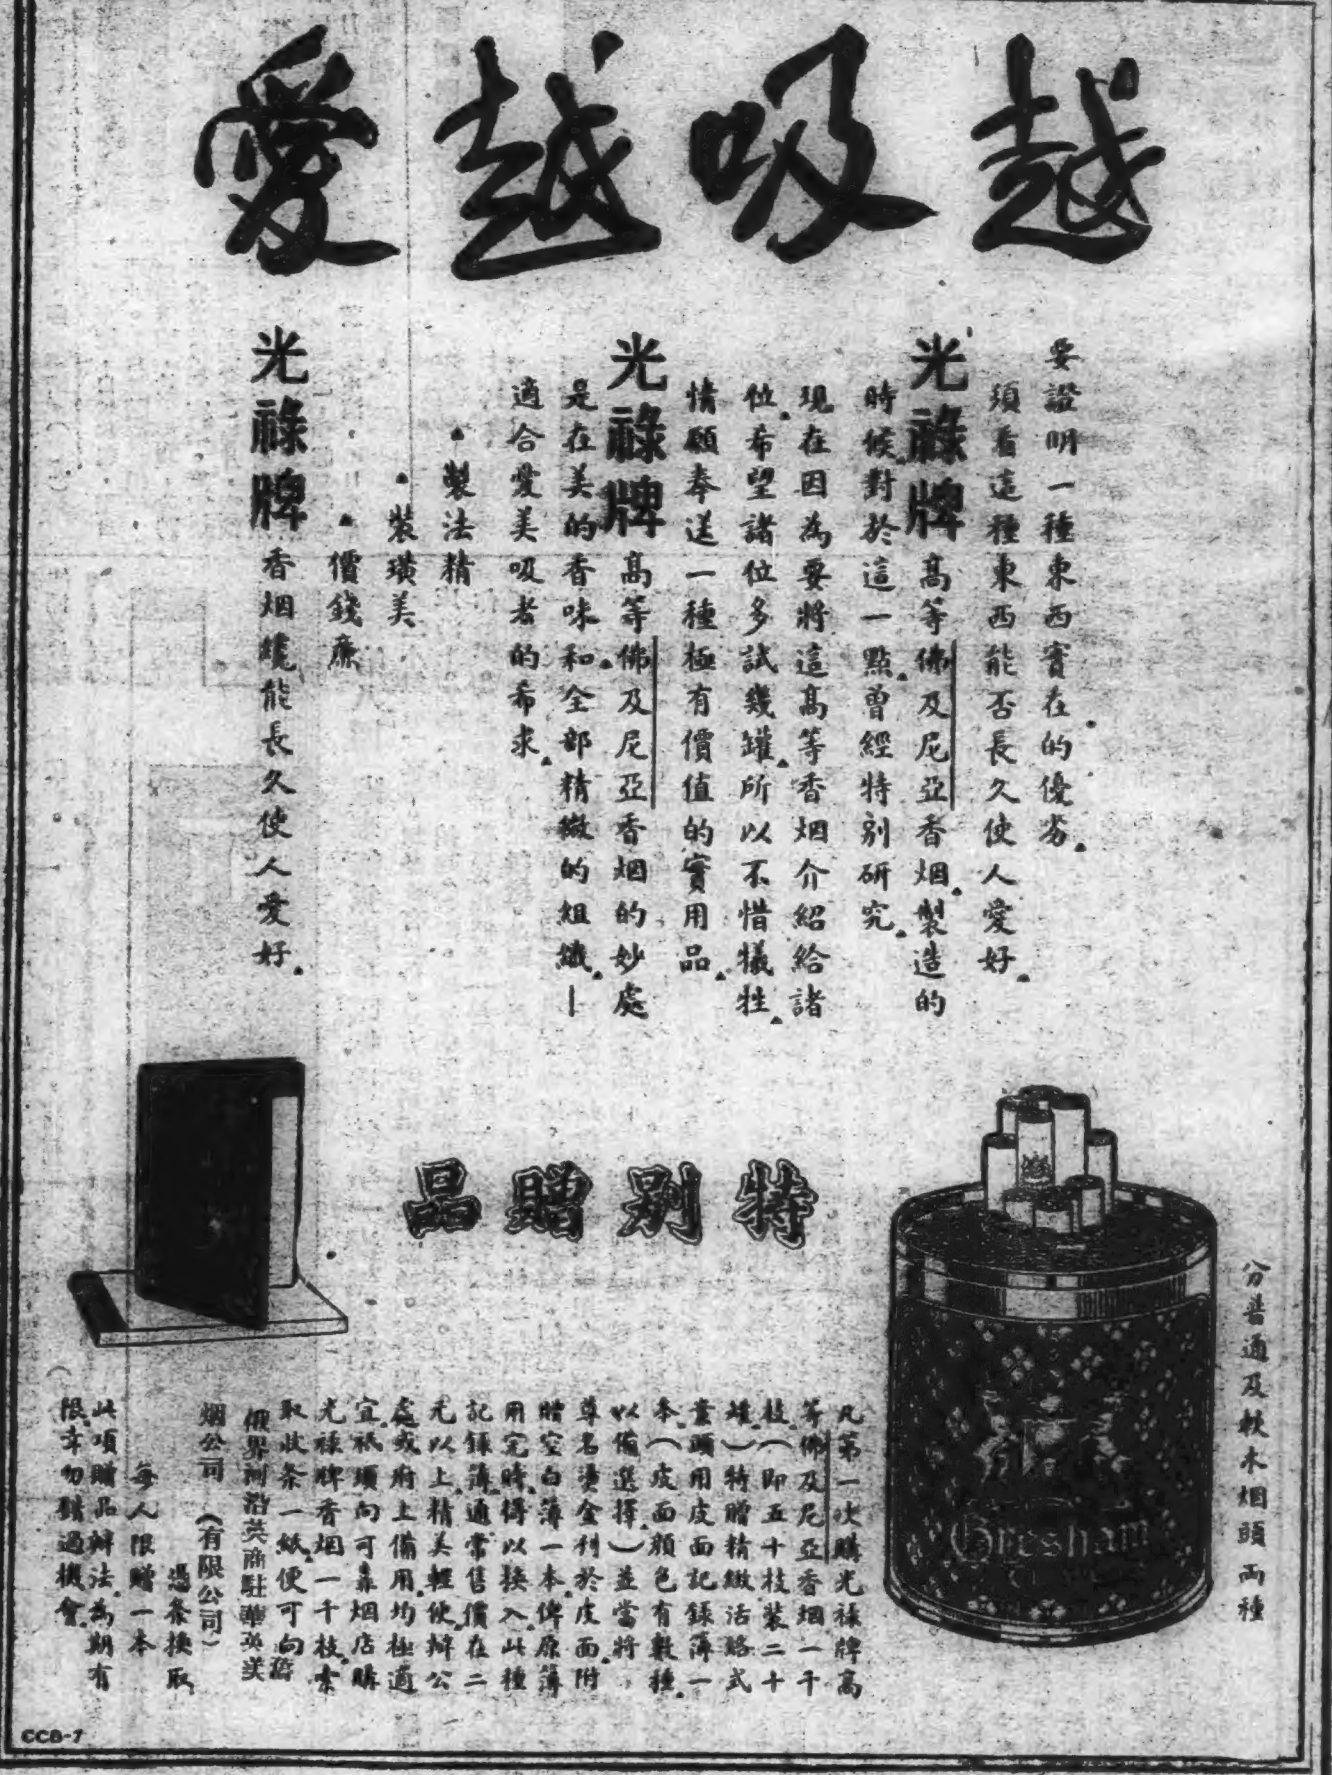 越吸越愛
要證明一種東西實在的優劣
須看這種東西能否長久使人愛好
光祿牌高等佛及尼亞香烟製造的
時候對於這一點曾經特別研究
現在因為要將這高等香烟介紹給諸
位希望諸位多試幾罐所以不惜犧牲
情願奉送一種極有價值的實用品
光祿牌高等佛及尼亞香烟的妙處
是在美的香味和全部精緻的組織—
適合愛美吸者的希求
製法精
裝璜美
價錢廉
光祿牌香烟纔能長久使人愛好
特別贈品
分普通及軟木烟頭兩種
Gresham
凡第一次購光祿牌高
等佛及尼亞香烟一千
枝(即五十枝裝二十
罐)特贈精緻活絡式
皮面記錄薄一
本(皮面顏色有數種
以備選擇)並當將
尊名燙金刊於皮面附
贈空白薄一本俾原薄
用完時得以換入此種
記錄薄通常售價在二
元以上精美輕便辦公
處或府上備用均極適
宜祇須向可靠烟店購
光祿牌香烟一千枝索
取收条一紙便可向
英商駐華英美
烟公司(有限公司)
憑条換取
每人限贈一本
此項贈品辦法為期有
限幸勿錯過機會
CCB-7